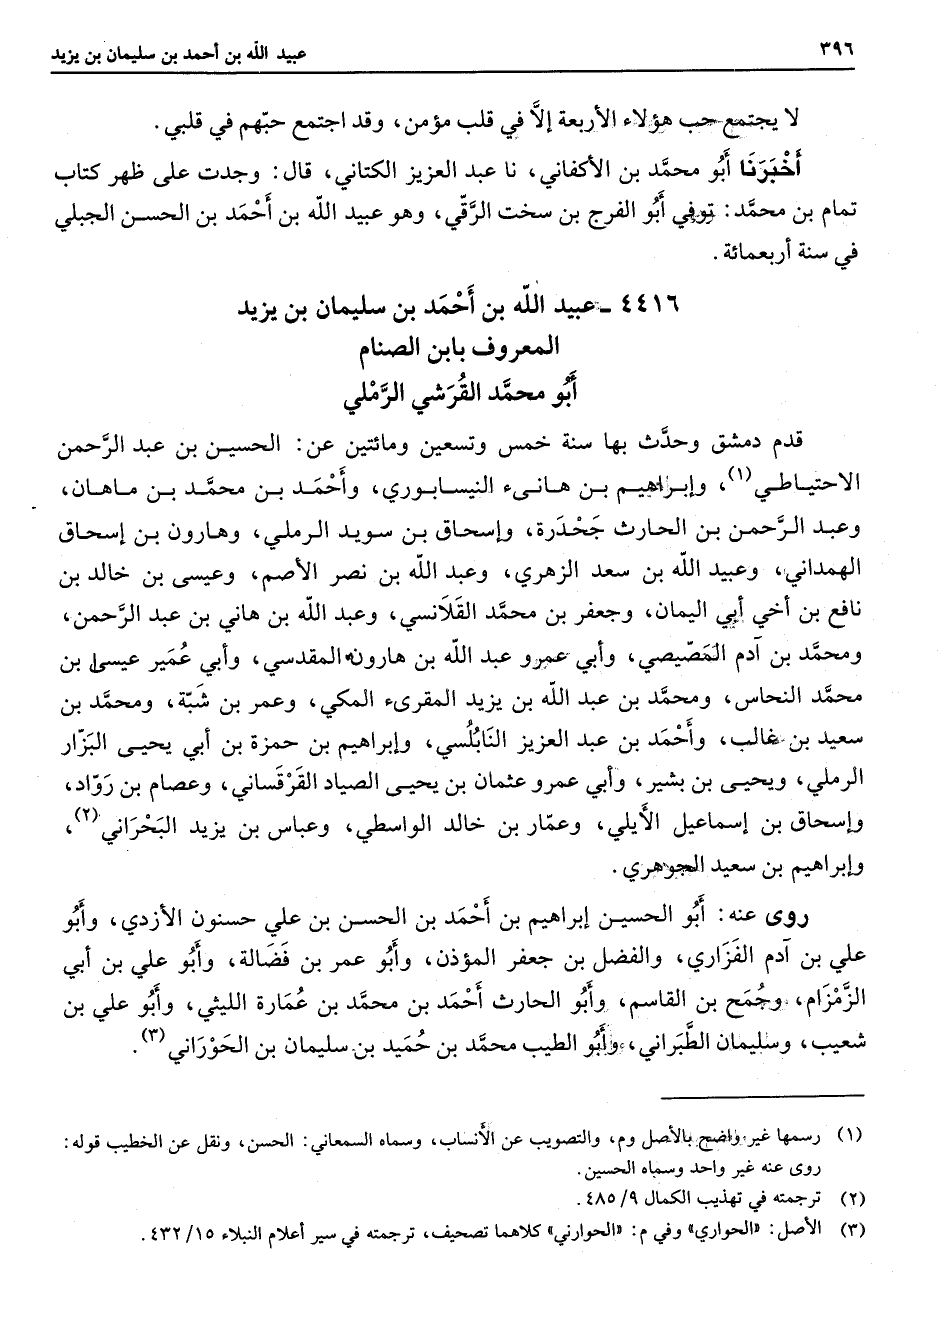 ٣٩٦
عبيد الله بن أحمد بن سليمان بن يزيد
لا يجتمع حب هؤلاء الأربعة إلَّا في قلب مؤمن، وقد اجتمع حبّهم في قلبي.
أَخْبَرَنَا أَبُو محمَّد بن الأكفاني، نا عبد العزيز الكتاني، قال: وجدت على ظهر كتاب
تمام بن محمَّد: توفي أَبُو الفرج بن سخت الرَّقّي، وهو عبيد الله بن أَحْمَد بن الحسن الجبلي
في سنة أربعمائة.
٤٤١٦ ـ عبيد اللّه بن أَحْمَد بن سليمان بن يزيد
المعروف بابن الصنام
أَبُو محمَّد القُرَشي الرَّمْلي
قدم دمشق وحدَّث بها سنة خمس وتسعين ومائتين عن: الحسين بن عبد الرَّحمن
الاحتياطي(١)، وإبراهيم بن هانىء النيسابوري، وأَحْمَد بن محمَّد بن ماهان،
وعبد الرَّحمن بن الحارث جَحْدَرة، وإسحاق بن سويد الرملي، وهارون بن إسحاق
الهمداني، وعبيد اللّه بن سعد الزهري، وعبد اللّه بن نصر الأصم، وعيسى بن خالد بن
نافع بن أخي أبي اليمان، وجعفر بن محمَّد القَلَانسي، وعبد اللّه بن هاني بن عبد الرَّحمن،
ومحمَّد بن آدم المَصّيصي، وأبي عمرو عبد اللّه بن هارون المقدسي، وأبي عُمَير عيسى بن
محمَّد النحاس، ومحمَّد بن عبد اللّه بن يزيد المقرىء المكي، وعمر بن شَبّة، ومحمَّد بن
سعيد بن غالب، وأَحْمَد بن عبد العزيز النَابُلُسي، وإبراهيم بن حمزة بن أبي يحيى البَزّار
الرملي، ويحيى بن بشير، وأبي عمرو عثمان بن يحيى الصياد القَرْقَساني، وعصام بن رَوّاد،
وإسحاق بن إسماعيل الأيلي، وعمّار بن خالد الواسطي، وعباس بن يزيد البَحْرَاني(٢)،
وإبراهيم بن سعيد الجوهري.
روى عنه: أَبُو الحسين إبراهيم بن أَحْمَد بن الحسن بن علي حسنون الأزدي، وأَبُو
علي بن آدم الفَزَاري، والفضل بن جعفر المؤذن، وأَبُو عمر بن فَضَالة، وأَبُو علي بن أبي
الزَّمْزَام، وجُمَح بن القاسم، وأَبُو الحارث أَحْمَد بن محمَّد بن عُمَارة الليثي، وأَبُو علي بن
شعيب، وسليمان الطَّبَراني، وأَبُو الطيب محمَّد بن حُمَيد بن سليمان بن الحَوْرَاني(٣).
(١) رسمها غير واضح بالأصل وم، والتصويب عن الأنساب، وسماه السمعاني: الحسن، ونقل عن الخطيب قوله:
روى عنه غير واحد وسماه الحسين.
(٢) ترجمته في تهذيب الكمال ٩/ ٤٨٥.
(٣) الأصل: «الحواري» وفي م: «الحوارني» كلاهما تصحيف، ترجمته في سير أعلام النبلاء ١٥/ ٤٣٢.